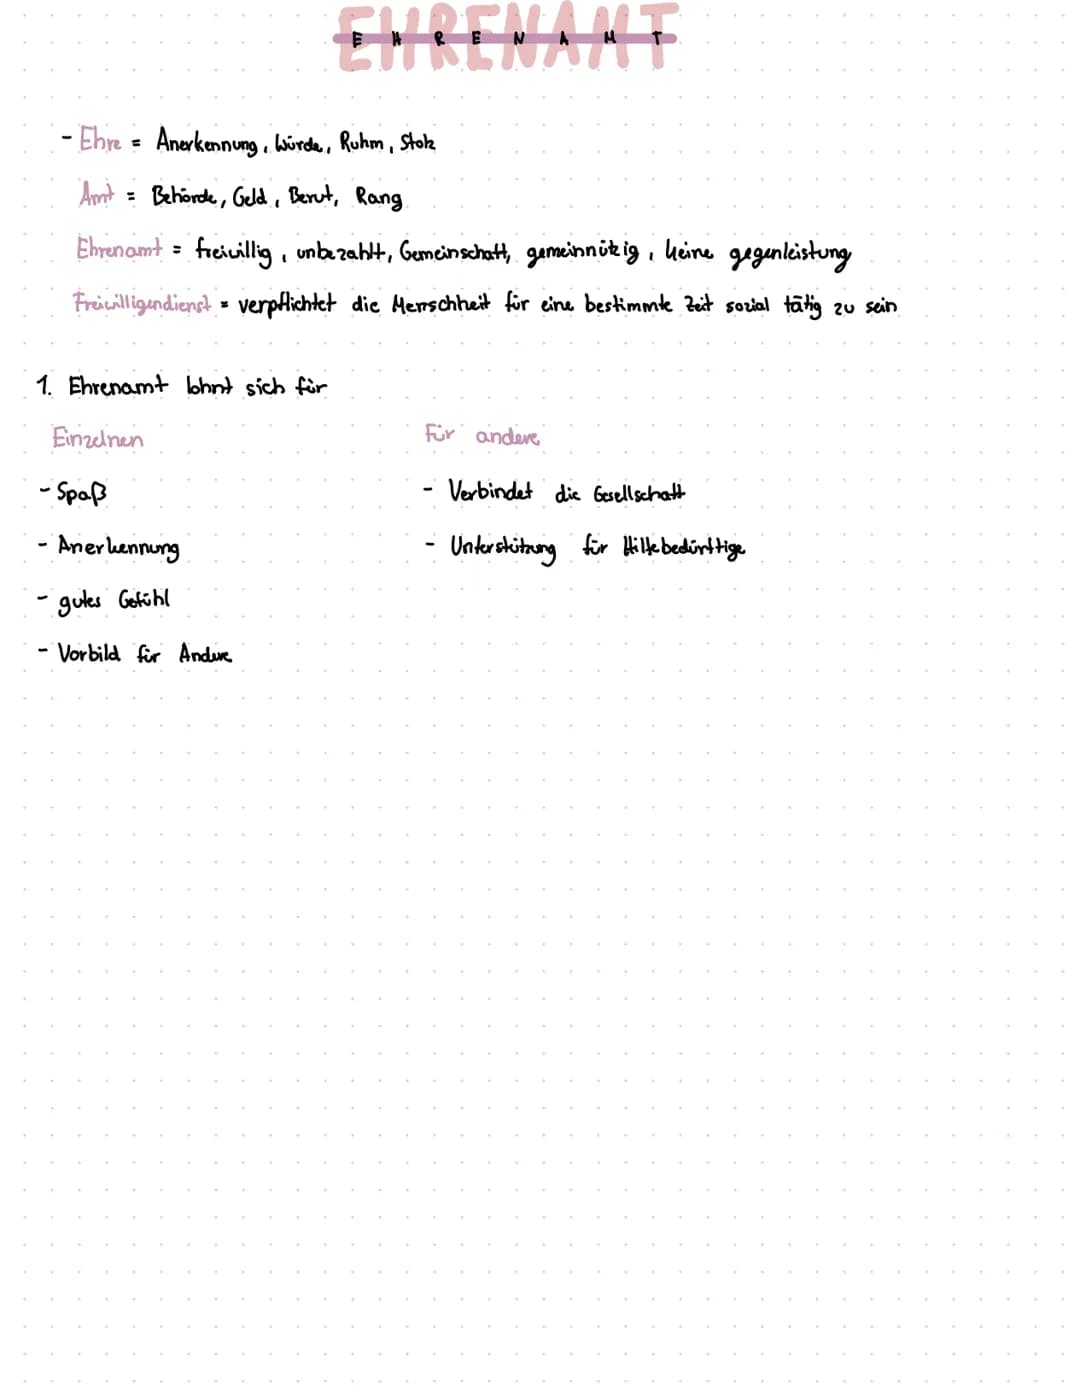 EHRENAMT
- Ehre = Anerkennung, Würde, Ruhm, Stolz
Amt = Behörde, Geld, Beruf, Rang
Ehrenamt = freiwillig, unbezahlt, Gemeinschaft, gemeinnützig, keine gegenleistung
Freiwilligendienst = verpflichtet die Menschheit für eine bestimmte Zeit sozial tätig zu sein
1. Ehrenamt lohnt sich für
Einzelnen
- Spaß
- Anerkennung
- gutes Gefühl
- Vorbild für Andere
Für andere
- Verbindet die Gesellschaft
- Unterstützung für Hilfebedürftige